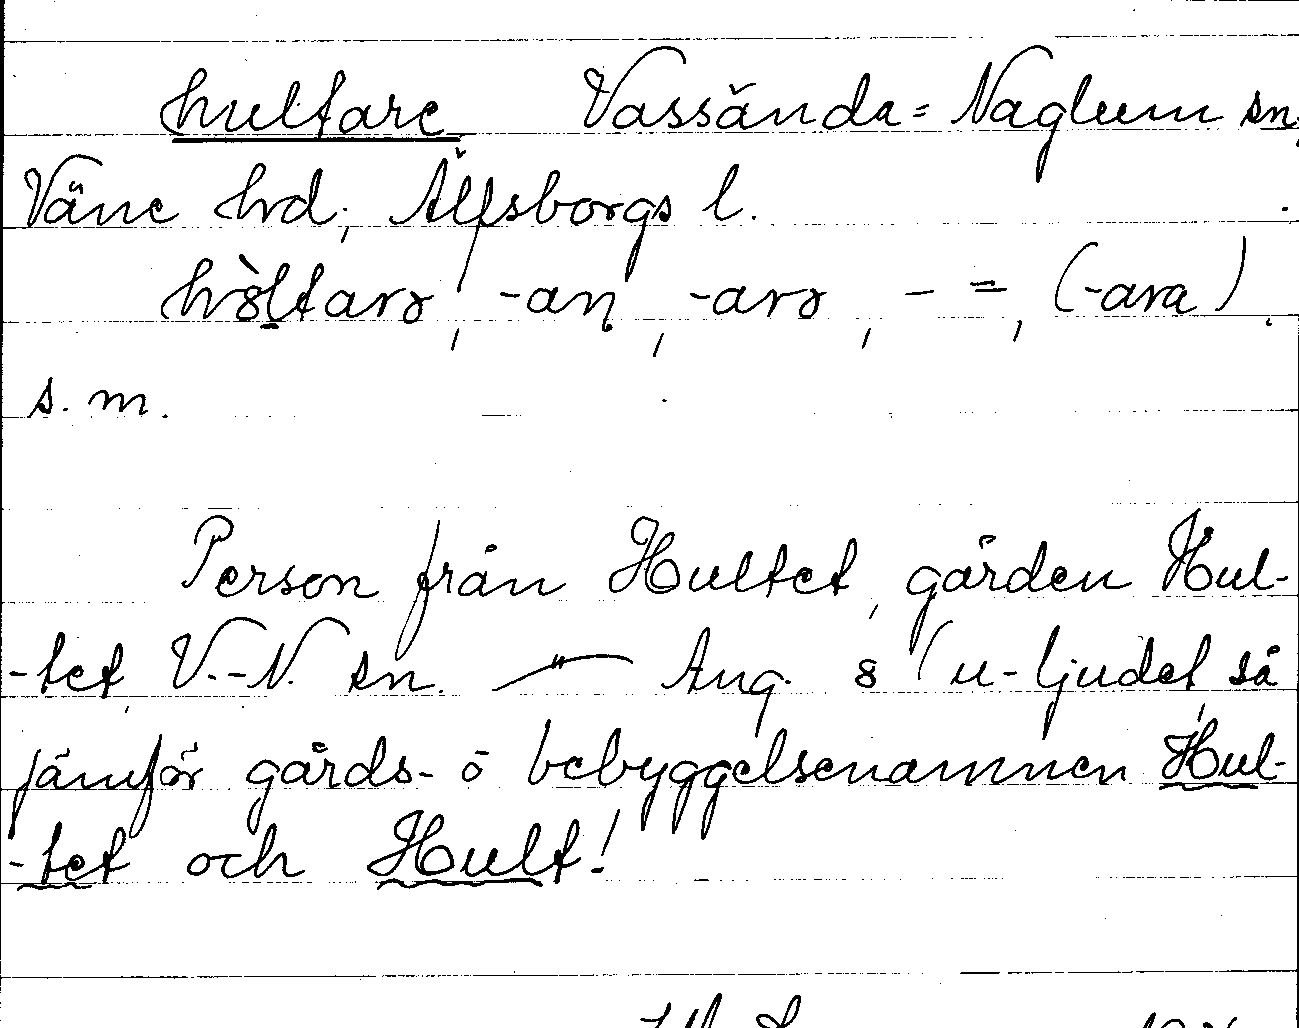 hultare Vassända-Naglum sn,
Väne hrd, Älfsborgs l.
hòltarə, -aṇ, -arə, - =, (-ara).
s. m.
Person från Hultet, gården Hul-
-tet, V.-N. sn. — " — Ang. 8 (u-ljudet, så
jämför gårds- o bebyggelsenamnen Hul-
-tet och Hult!